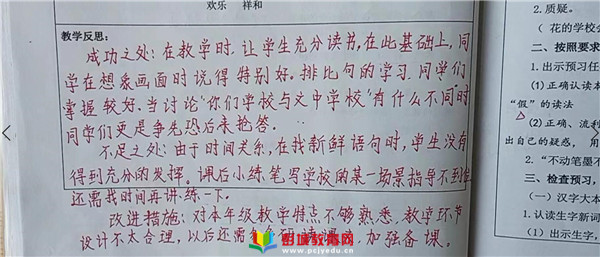 欢乐 祥和
教学反思:
成功之处:在教学时,让学生充分读书,在此基础上,同
学在想象画面时说得特别好。排比句的学习,同学们
掌握较好。当讨论“你们学校与文中学校”有什么不同”时
同学们更是争先恐后来抢答。
不足之处:由于时间关系,在找新鲜语句时,学生没有
得到充分的发挥。课后小练笔写学校的某一场景指导不到位
还需找时间再讲、练一下。
改进措施:对本年级教学特点不够熟悉,教学环节
设计不太合理,以后还需 加强备课。
相城教育网
www.pcjyedu.cn
2.质疑。
(花的学校
二、按照要求
1.出示预习任
(1)正确认读本
“假”的读法
(2)正确、流利
出自己的疑惑,用
2.“不动笔墨不
三、检查预习,
(一)汉字大本
1.认读生字新词
(1)出示生字,